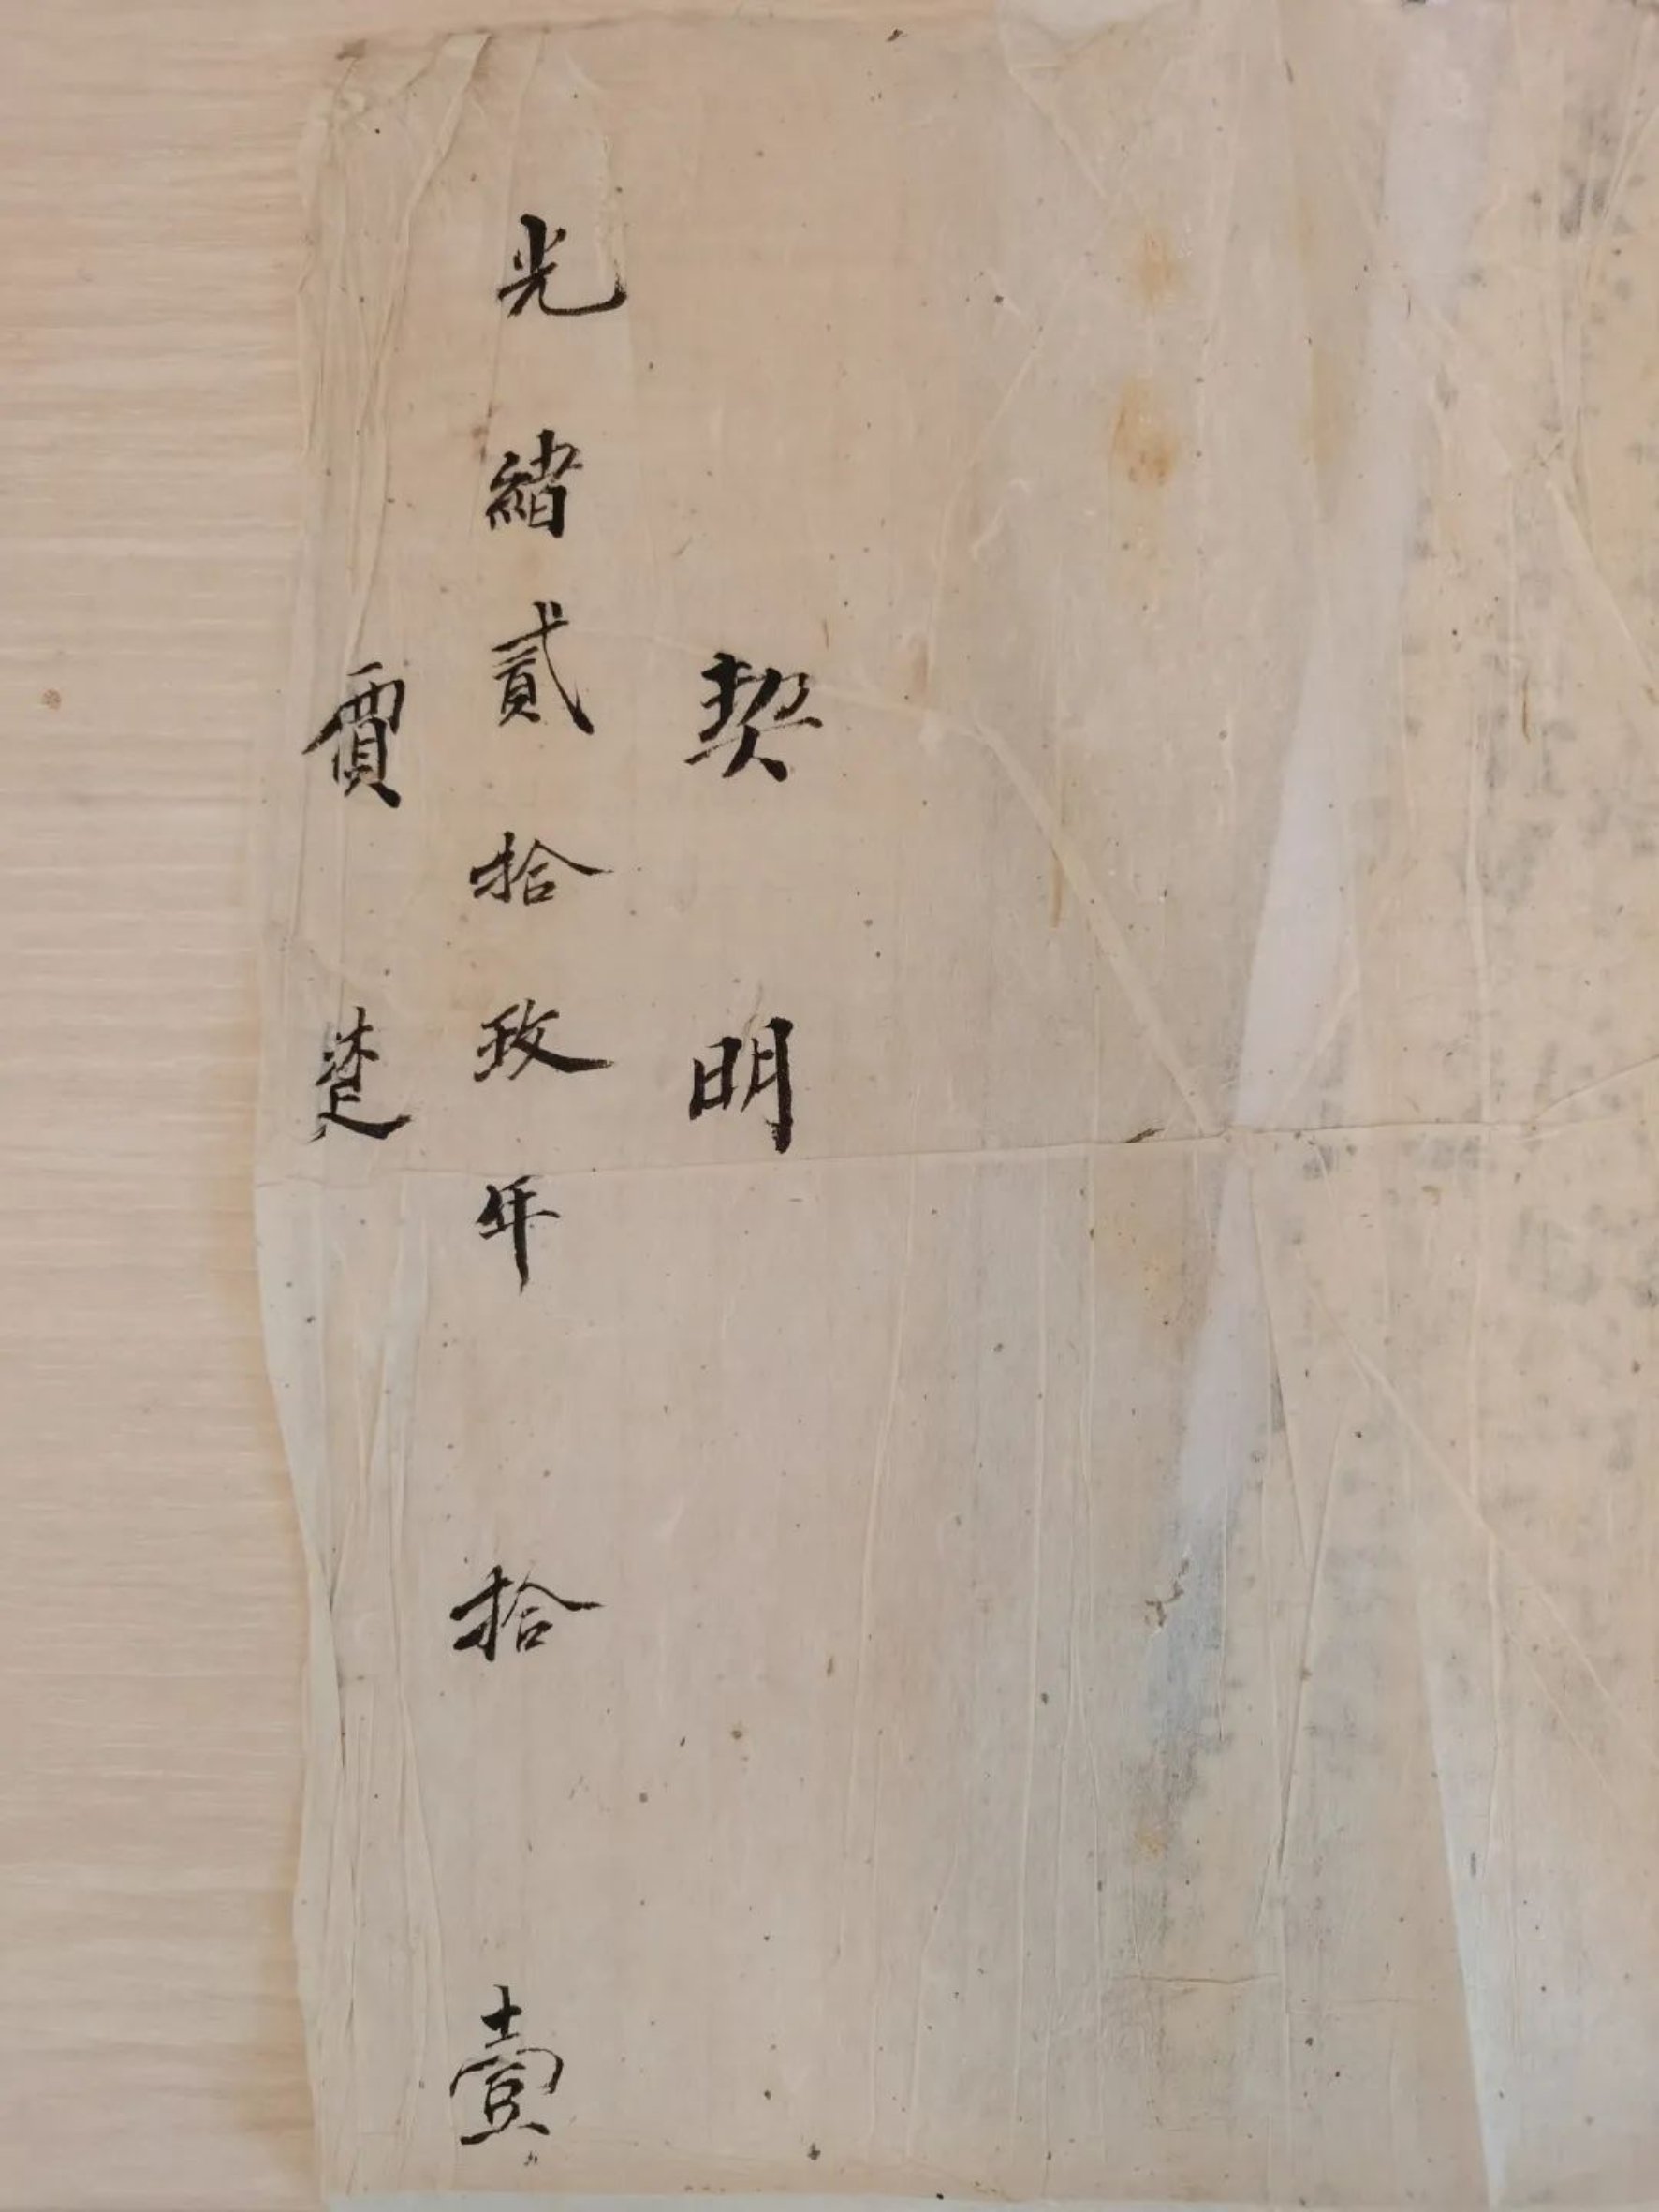 契明
光緒貳拾玖年拾壹
價楚